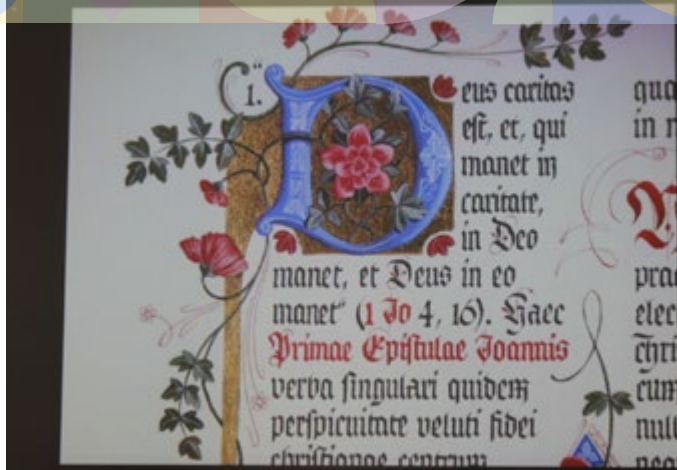 1. "Deus caritas
est, et, qui
manet in
caritate,
in Deo
manet, et Deus in eo
manet" (1 Jo 4, 16). Haec
Primae Epistulae Joannis
verba singulari quidem
perspicuitate veluti fidei
christianae centrum
in